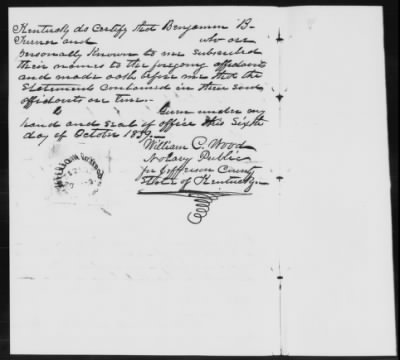 Kentucky do certify that Benjamin B.
Turner and who are
personally known to me subscribed
their names to the foregoing affidavits
and made oath before me that the
statements contained in their said
affidavits are true.
Given under my
hand and seal of office this Sixth
day of October 1859.
William C. Wood
Notary Public
for Jefferson County
State of Kentucky